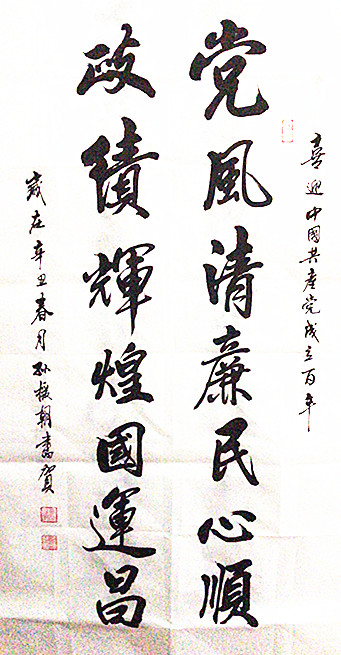 喜迎中国共産党成立百年
党風清廉民心順
政績輝煌國運昌
歲在辛丑春月孙援朝書賀